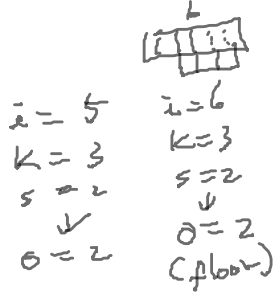 6
i = 5
k = 3
s = 2
↓
o = 2
i = 6
k = 3
s = 2
↓
o = 2
(floor)